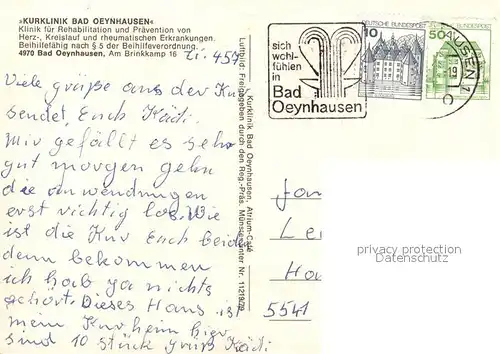 »KURKLINIK BAD OEYNHAUSEN«
Klinik für Rehabilitation und Prävention von
Herz-, Kreislauf und rheumatischen Erkrankungen.
Beihilfefähig nach § 5 der Beihilfeverordnung.
4970 Bad Oeynhausen, Am Brinkkamp 16
Zi. 457
Viele grüße aus der Kur
sendet Euch Kädi.
Mir gefällt es sehr
gut morgen gehn
die anwendungen
erst richtig los. Wie
ist die Kur Euch beide
denn bekommen
ich hab ja nichts
gehört. Dieses Haus ist
mein Kurheim hier
sind 10 stück grüß Kädi
Kurklinik Bad Oeynhausen, Atrium-Café
Luftbild: Freigegeben durch den Reg.-Präs. Münster unter Nr. 11219/79
sich
wohl-
fühlen
in
Bad
Oeynhausen
10
DEUTSCHE BUNDESPOST
50
DEUTSCHE BUNDESPOST
AUSEN 1
19
C
Le
Ha
5541
privacy protection
Datenschutz